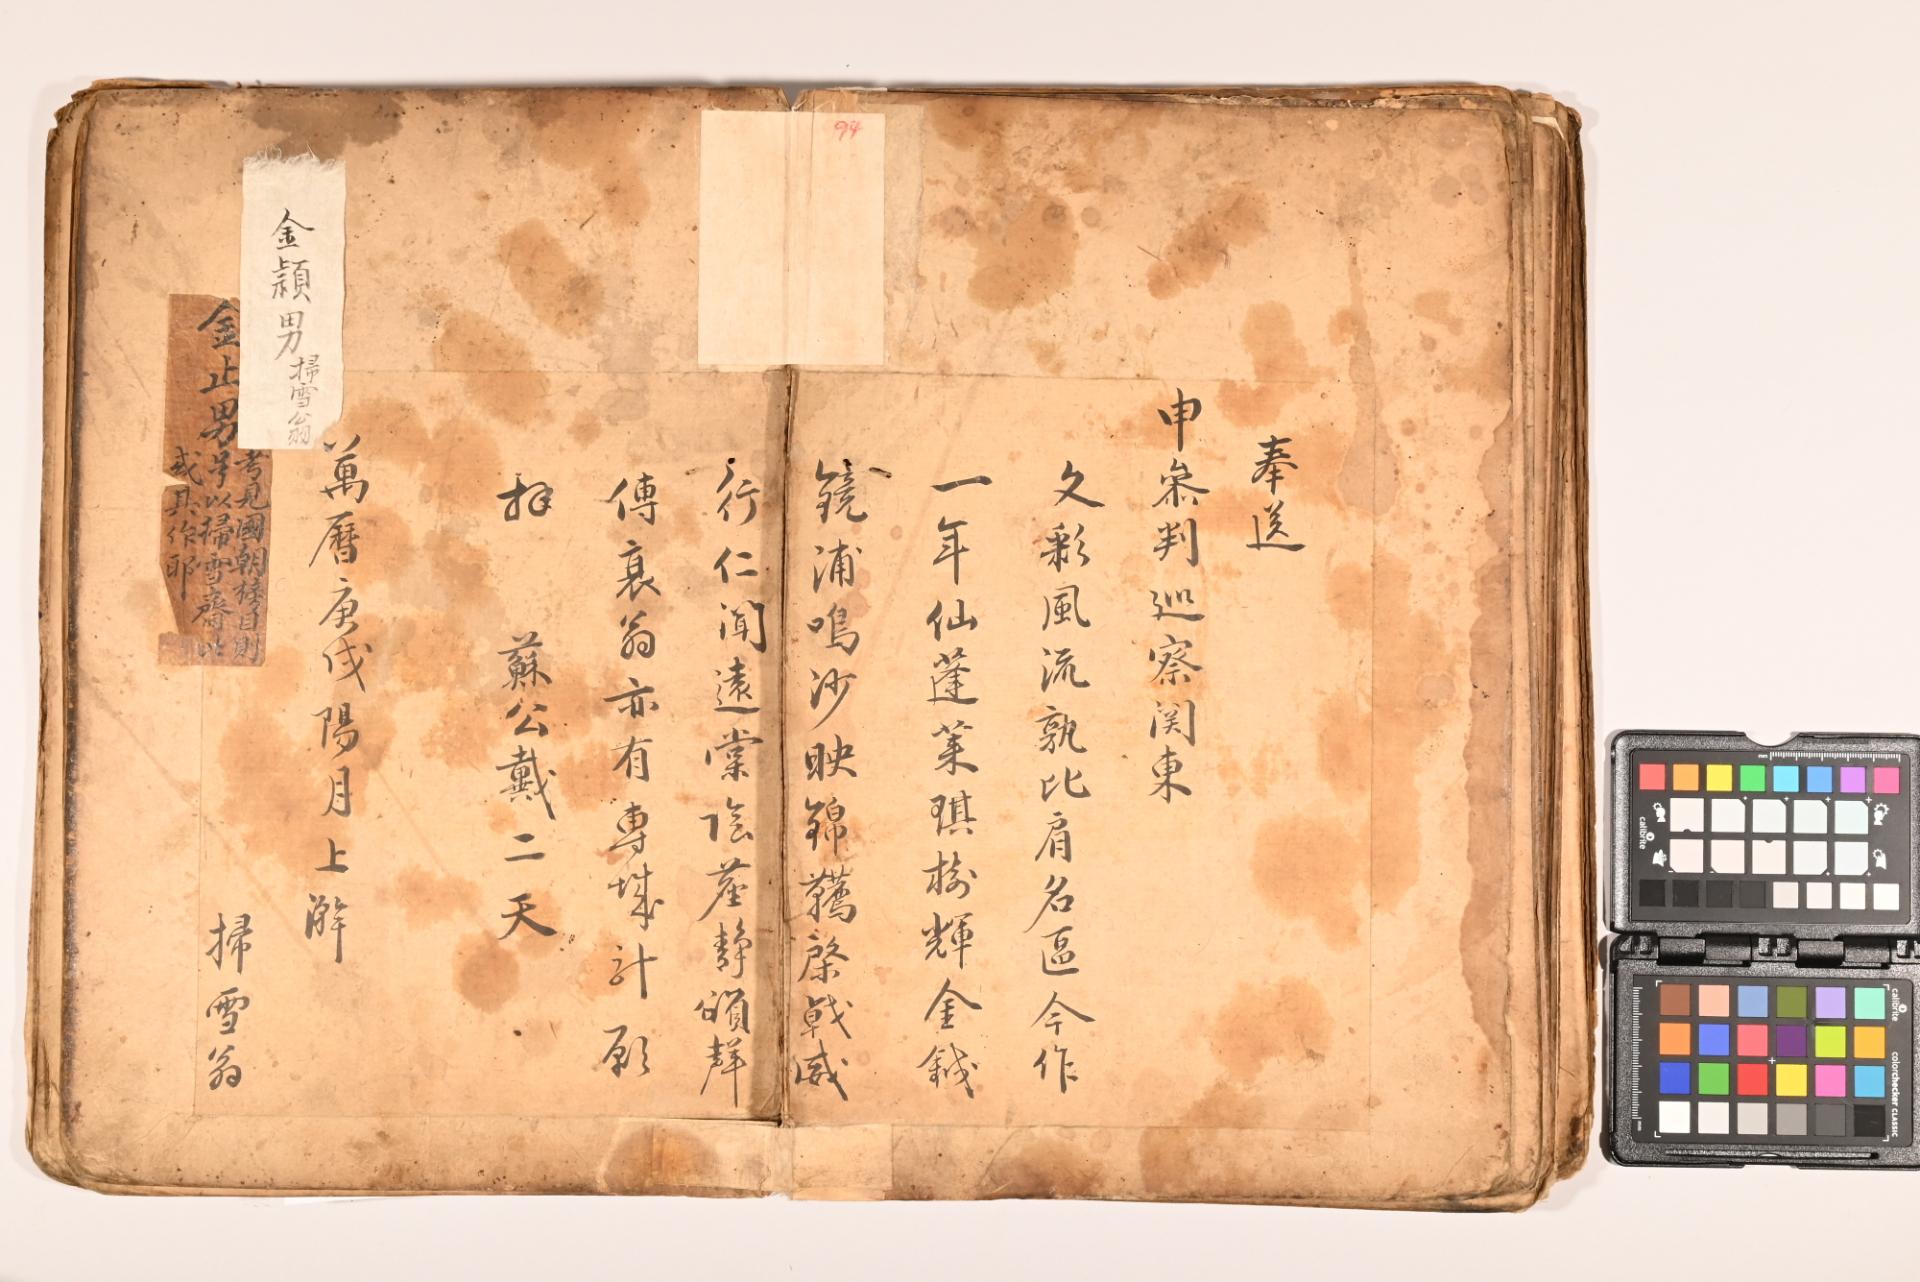 94
奉送
申叅判巡察関東
文彩風流孰比肩名區今作
一年仙蓬萊琪樹輝金鉞
鏡浦鳴沙映錦韉棨戟威
行仁聞遠棠陰產靜頌聲
傳衰翁亦有專城計願
拜蘇公戴二天
萬曆庚戌陽月上澣
掃雪翁
金穎男掃雪翁
金止男
考見國朝榜目則
号以掃雪齋此
或其作耶
calibrite
calibrite
colorchecker CLASSIC
mm